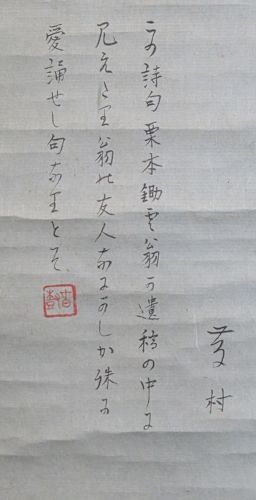 藤村
この詩句栗本鋤雲翁か遺稿の中に
見えたり翁の友人なにかしか殊に
愛誦せし句なりとそ